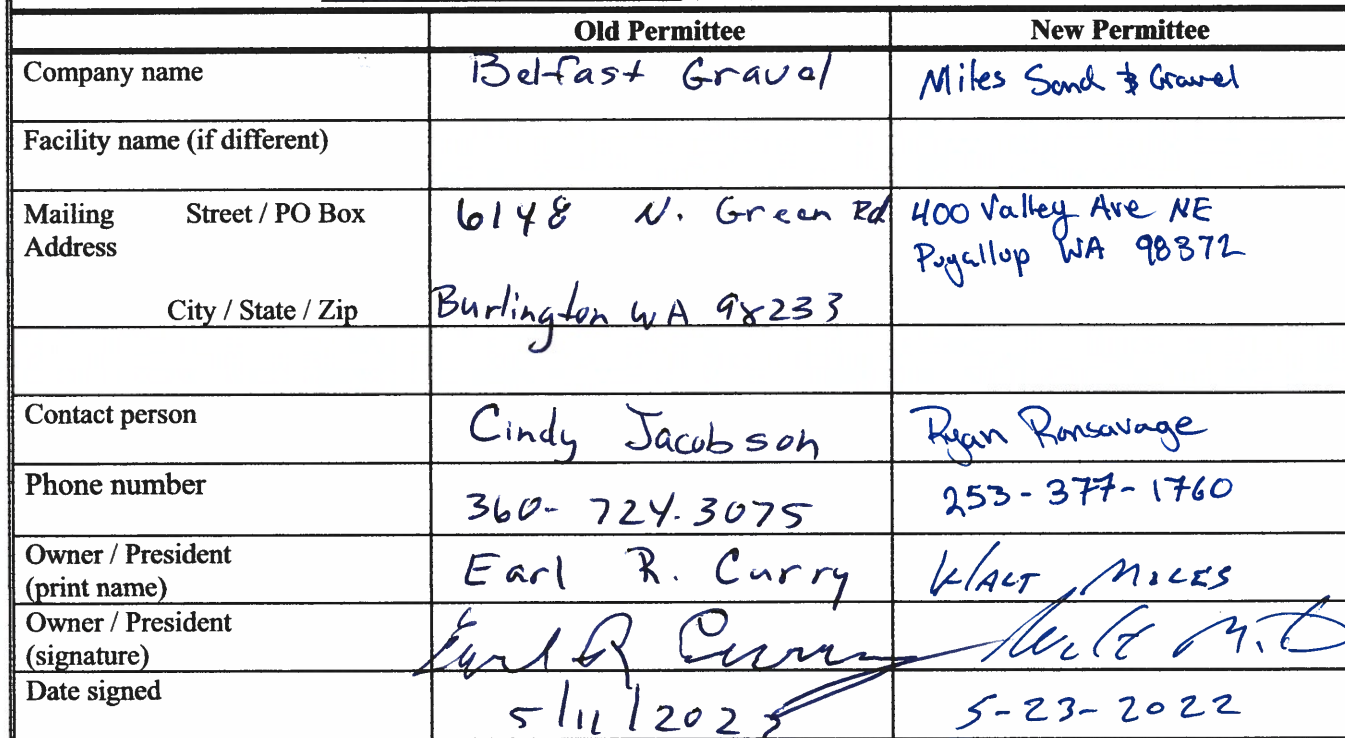 Old Permittee New Permittee
Company name Belfast Gravel Miles Sand & Gravel
Facility name (if different)
Mailing Address Street / PO Box 6148 N. Green Rd 400 Valley Ave NE
Puyallup WA 98372
City / State / Zip Burlington WA 98233
Contact person Cindy Jacobson Ryan Ransavage
Phone number 360-724-3075 253-377-1760
Owner / President
(print name) Earl R. Curry Walt Miles
Owner / President
(signature) Earl R Curry Walt
Date signed 5/11/202 5-23-2022